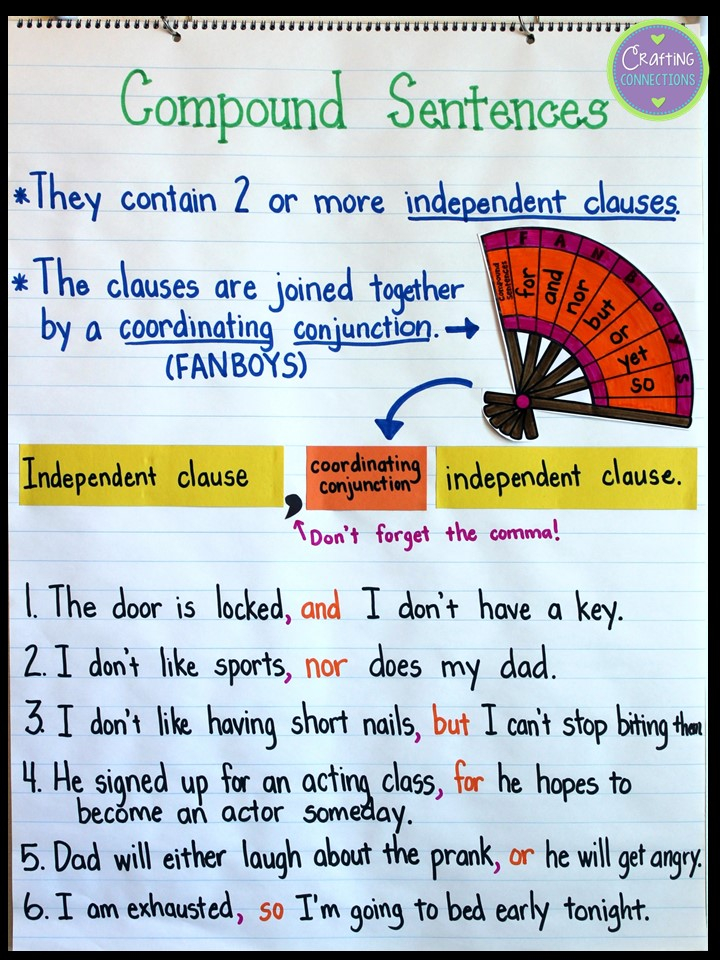 Crafting
CONNECTIONS
Compound Sentences
*They contain 2 or more independent clauses.
* The clauses are joined together
by a coordinating conjunction. →
(FANBOYS)
F A N B O Y S
compound sentences
for
and
nor
but
or
yet
so
Independent clause , coordinating conjunction independent clause.
Don't forget the comma!
1. The door is locked, and I don't have a key.
2. I don't like sports, nor does my dad.
3. I don't like having short nails, but I can't stop biting them
4. He signed up for an acting class, for he hopes to
become an actor someday.
5. Dad will either laugh about the prank, or he will get angry.
6. I am exhausted, so I'm going to bed early tonight.